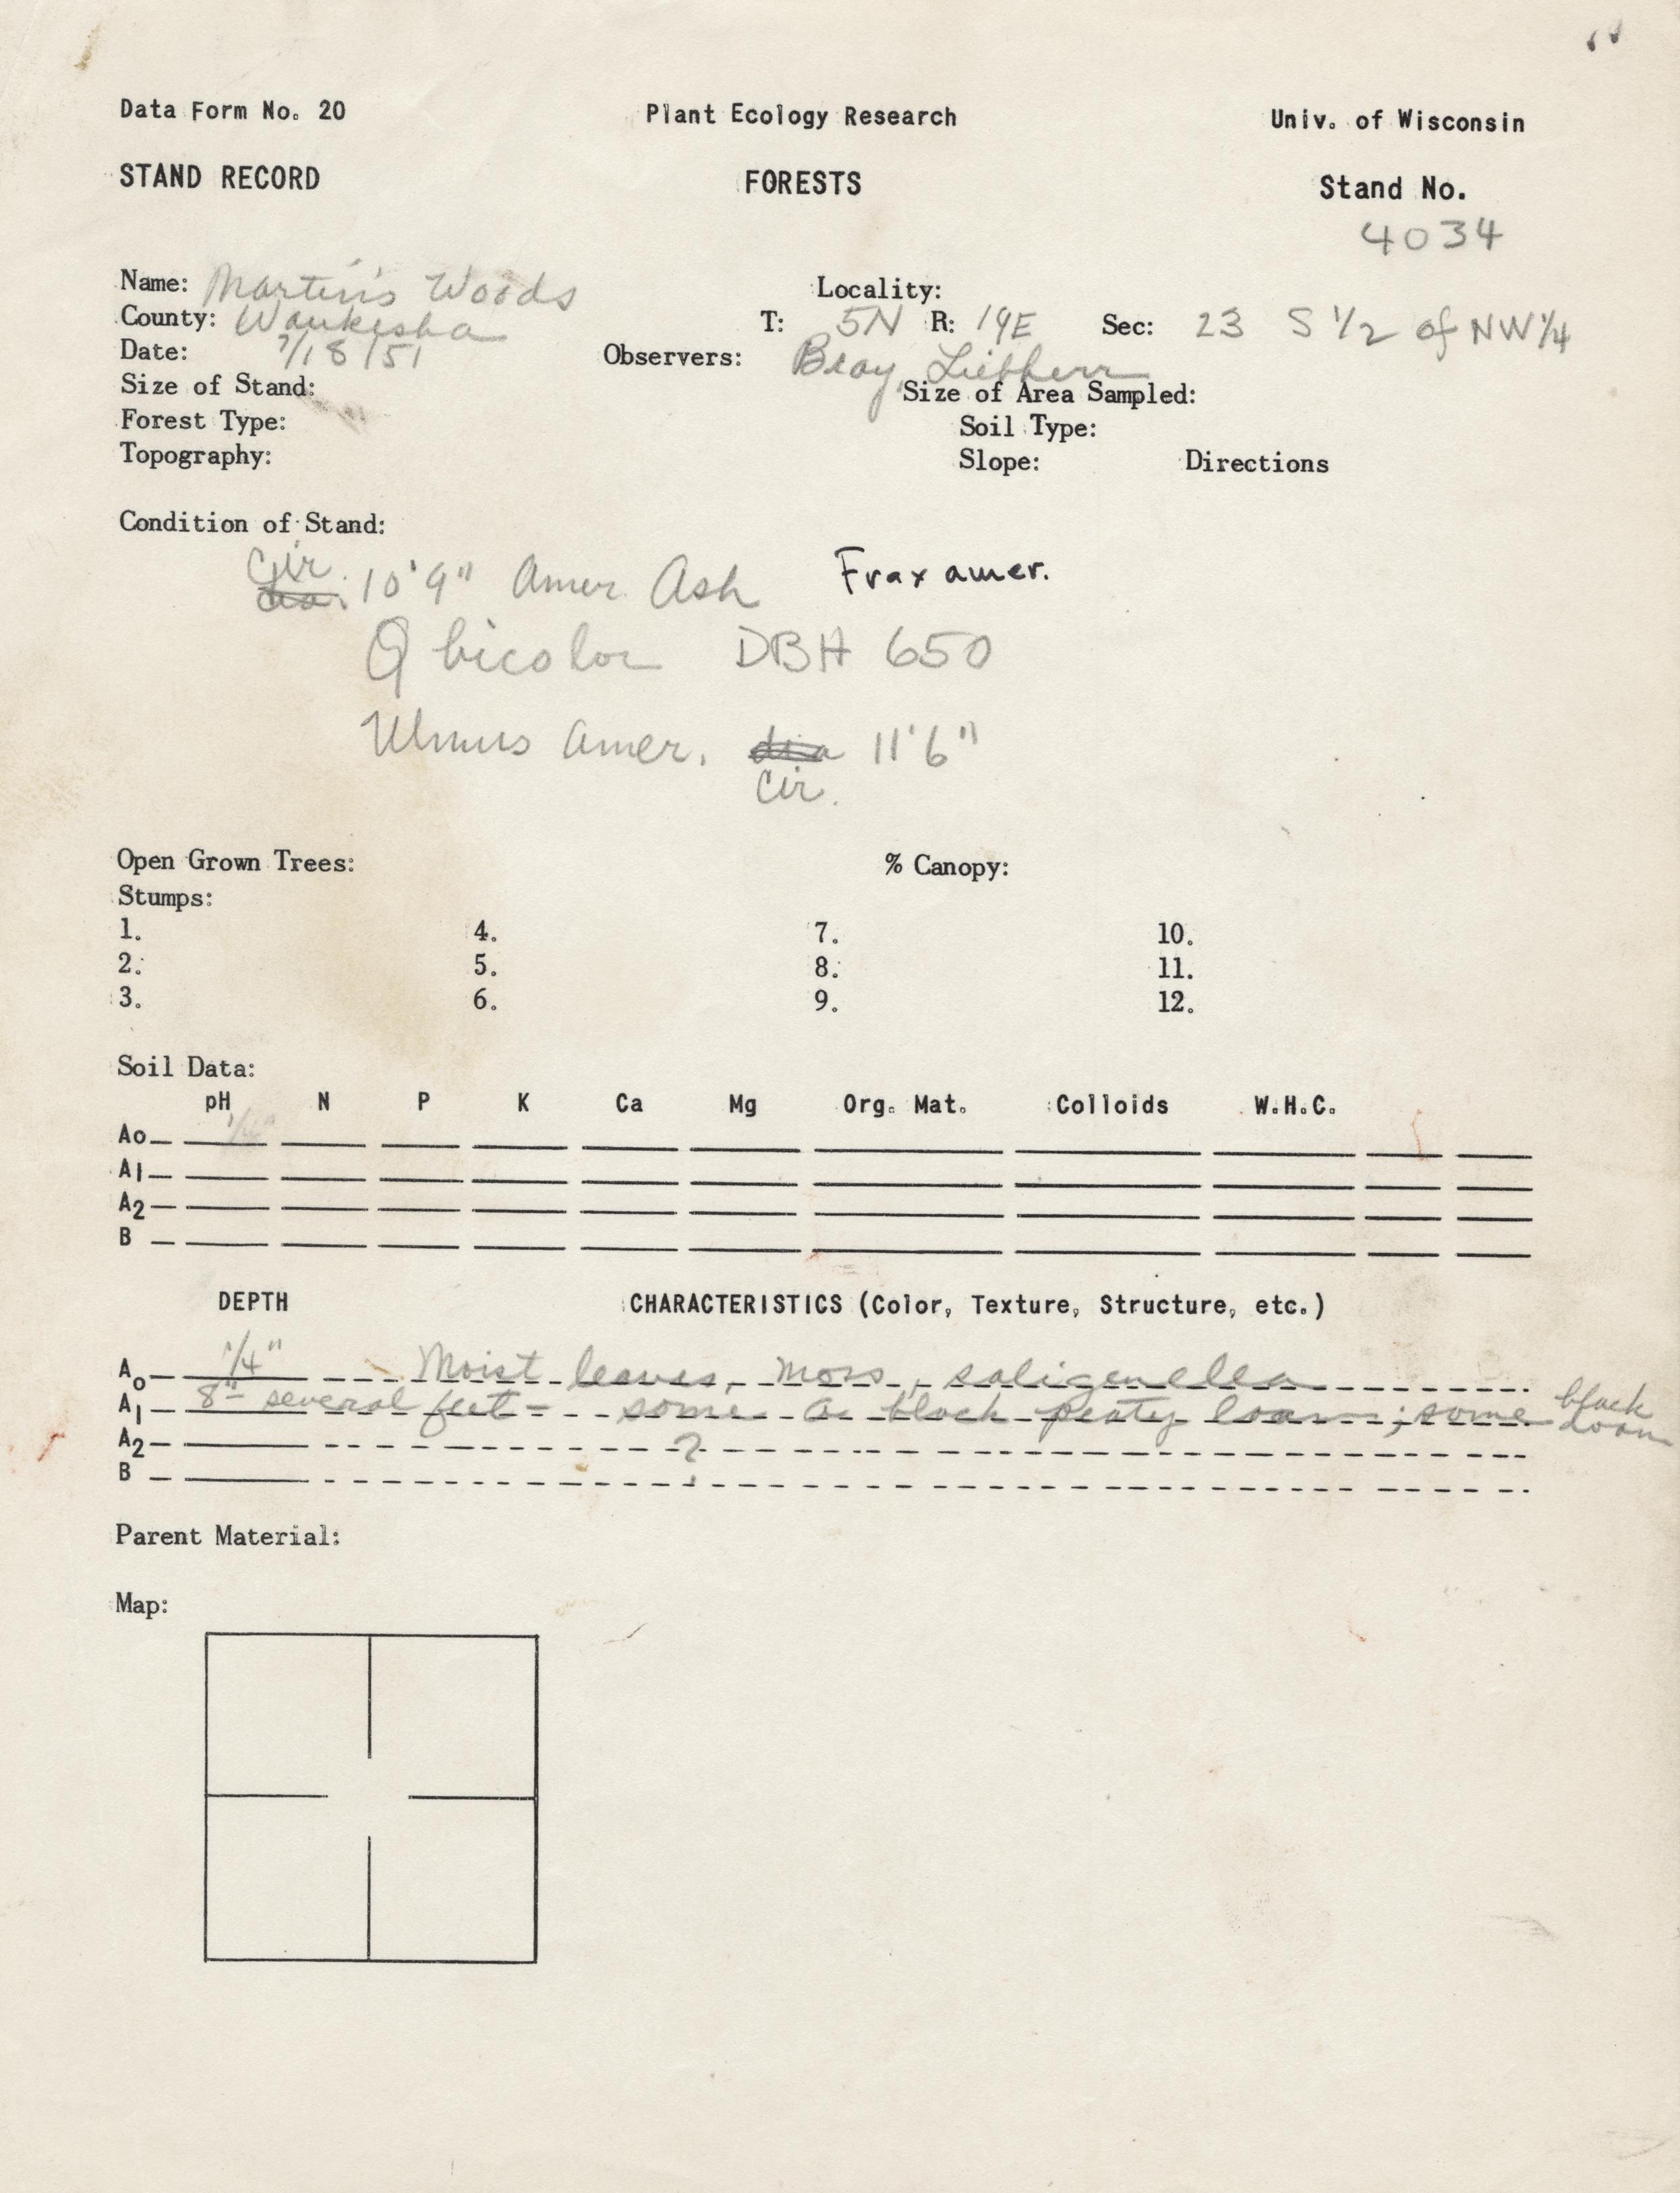 Data Form No. 20 Plant Ecology Research Univ. of Wisconsin
STAND RECORD FORESTS Stand No.
4034
Name: Martin's Woods Locality:
County: Waukesha T: 5N R: 19E Sec: 23 S 1/2 of NW 1/4
Date: 7/18/51 Observers: Bray, Liebherr
Size of Stand: Size of Area Sampled:
Forest Type: Soil Type:
Topography: Slope: Directions
Condition of Stand:
Cir
dia. 10'9" Amer. Ash Frax amer.
Q bicolor DBH 650
Ulmus amer. dia 11'6"
Cir.
Open Grown Trees: % Canopy:
Stumps:
1. 4. 7. 10.
2. 5. 8. 11.
3. 6. 9. 12.
Soil Data:
pH N P K Ca Mg Org. Mat. Colloids W.H.C.
Ao 1/4"
A1
A2
B
DEPTH CHARACTERISTICS (Color, Texture, Structure, etc.)
Ao 1/4" Moist leaves, moss, saligenella
A1 8" - several feet - some a black peaty loam; some black loam
A2 ?
B
Parent Material:
Map: